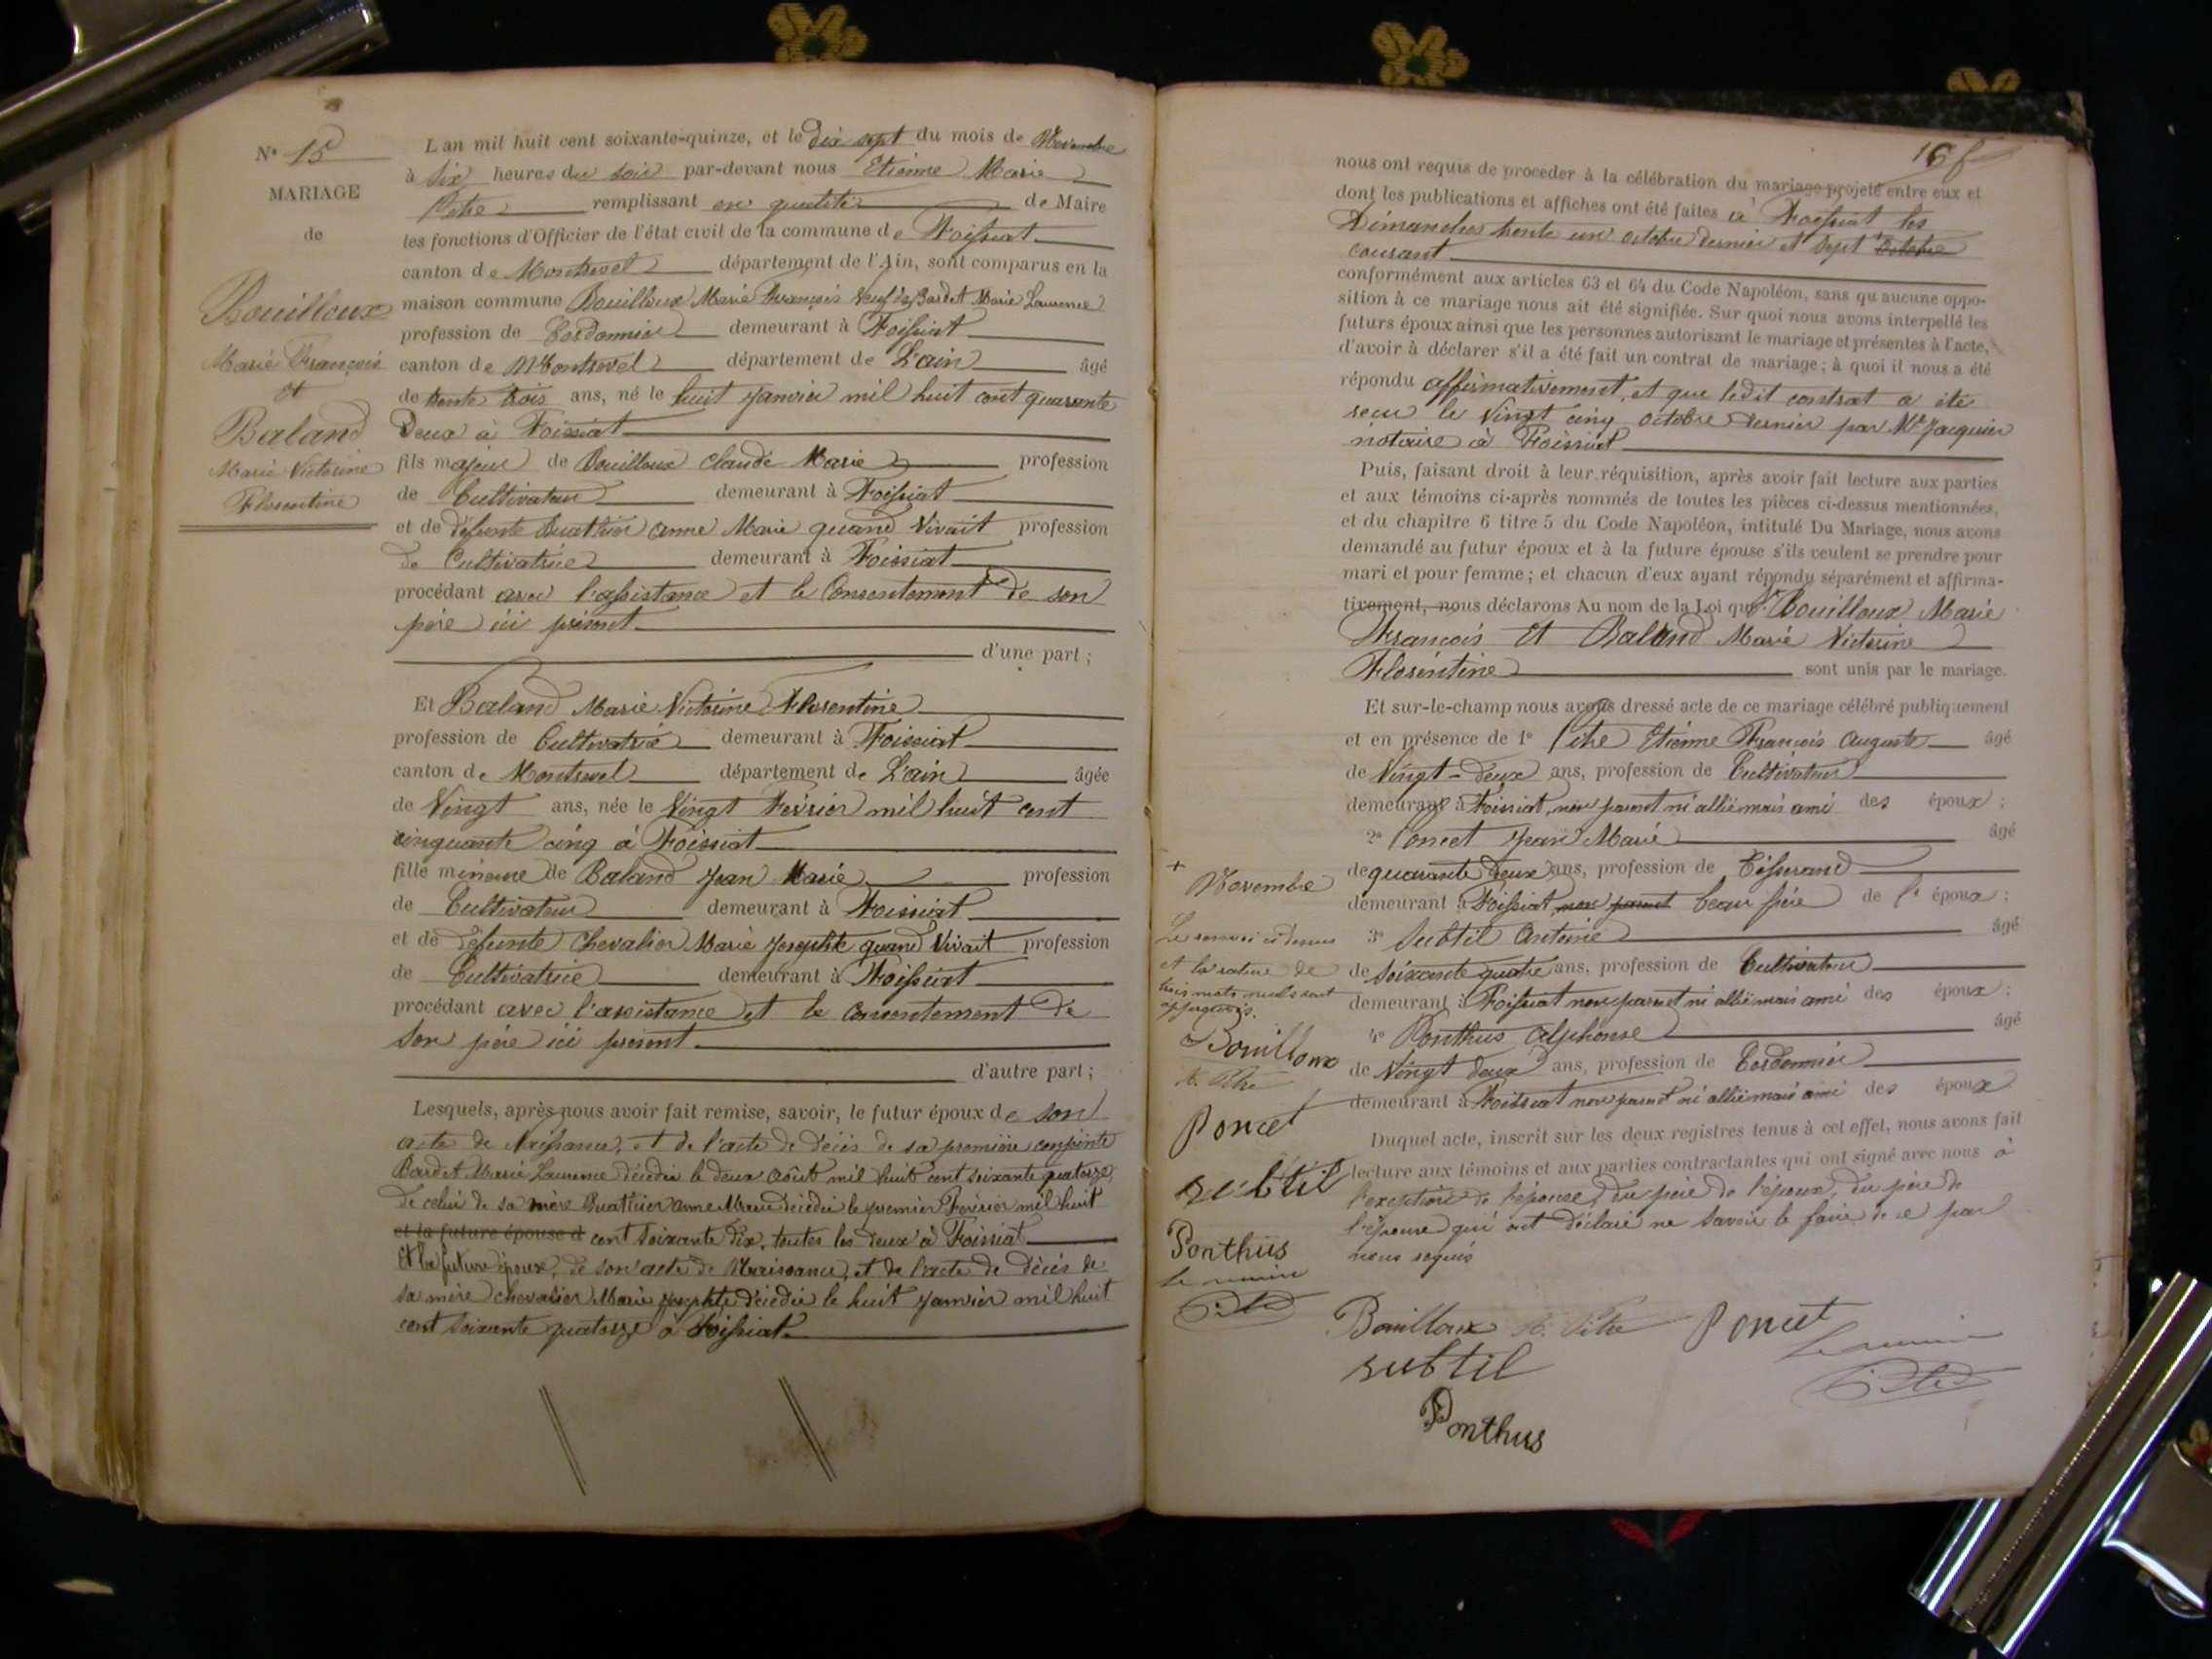 N° 15
MARIAGE
de
Bouilloux
Marie François
et
Baland
Marie Victorine
Florentine
L'an mil huit cent soixante-quinze, et le dix sept du mois de Novembre
à six heures du soir par-devant nous Etienne Marie
Pitre remplissant en qualité de Maire
les fonctions d'Officier de l'état civil de la commune de Foissiat
canton de Montrevel département de l'Ain, sont comparus en la
maison commune Bouilloux Marie François Veuf de Bardet Marie Laurence
profession de Cordonnier demeurant à Foissiat
canton de Montrevel département de L'ain âgé
de trente trois ans, né le huit Janvier mil huit cent quarante
Deux à Foissiat
fils majeur de Bouilloux Claude Marie profession
de Cultivateur demeurant à Foissiat
et de défunte Buathier Anne Marie quand Vivait profession
de Cultivatrice demeurant à Foissiat
procédant avec l'assistance et le Consentement de son
père ici présent
d'une part ;
Et Baland Marie Victorine Florentine
profession de Cultivatrice demeurant à Foissiat
canton de Montrevel département de L'ain âgée
de Vingt ans, née le Vingt Février mil huit cent
cinquante cinq à Foissiat
fille mineure de Baland Jean Marie profession
de Cultivateur demeurant à Foissiat
et de défunte Chevalier Marie Josephte quand Vivait profession
de Cultivatrice demeurant à Foissiat
procédant avec l'assistance et le consentement de
son père ici présent
d'autre part ;
Lesquels, après nous avoir fait remise, savoir, le futur époux de son
acte de Naissance, et de l'acte de décès de sa première conjointe
Bardet Marie Laurence décédée le deux août mil huit cent soixante quatorze,
de celui de sa mère Buathier Anne Marie décédée le premier Février mil huit
et la future épouse d cent soixante dix, toutes les deux à Foissiat
Et la future épouse, de son acte de Naissance, et de l'acte de décès de
sa mère Chevalier Marie Josephte décédée le huit Janvier mil huit
cent soixante quatorze à Foissiat
nous ont requis de procéder à la célébration du mariage projeté entre eux et
dont les publications et affiches ont été faites à Foissiat les
Dimanches trente un octobre dernier et sept octobre
courant
conformément aux articles 63 et 64 du Code Napoléon, sans qu'aucune oppo-
sition à ce mariage nous ait été signifiée. Sur quoi nous avons interpellé les
futurs époux ainsi que les personnes autorisant le mariage et présentes à l'acte,
d'avoir à déclarer s'il a été fait un contrat de mariage ; à quoi il nous a été
répondu affirmativement, et que ledit contrat a été
recu le Vingt cinq octobre dernier par Me Jacquier
notaire à Foissiat
Puis, faisant droit à leur réquisition, après avoir fait lecture aux parties
et aux témoins ci-après nommés de toutes les pièces ci-dessus mentionnées,
et du chapitre 6 titre 5 du Code Napoléon, intitulé Du Mariage, nous avons
demandé au futur époux et à la future épouse s'ils veulent se prendre pour
mari et pour femme ; et chacun d'eux ayant répondu séparément et affirma-
tivement, nous déclarons Au nom de la Loi que Bouilloux Marie
François Et Baland Marie Victorine
Florentine sont unis par le mariage.
Et sur-le-champ nous avons dressé acte de ce mariage célébré publiquement
et en présence de 1° Pitre Etienne François Auguste âgé
de Vingt-deux ans, profession de Cultivateur
demeurant à Foissiat, non parent ni allié mais ami des époux ;
2° Poncet Jean Marie âgé
de quarante deux ans, profession de Tisserand
demeurant à Foissiat, non parent beau frère de l'époux ;
3° Subtil Antoine âgé
de soixante quatre ans, profession de Cultivateur
demeurant à Foissiat non parent ni allié mais ami des époux ;
4° Ponthus Alphonse âgé
de Vingt deux ans, profession de Cordonnier
demeurant à Foissiat non parent ni allié mais ami des époux
Duquel acte, inscrit sur les deux registres tenus à cet effet, nous avons fait
lecture aux témoins et aux parties contractantes qui ont signé avec nous à
l'exception de l'épouse, du père de l'époux, du père de
l'épouse qui ont déclaré ne savoir le faire de ce par
nous requis
Bouilloux A. Pitre Poncet
Le maire
Pitre
subtil
Ponthus
+
Novembre
Le renvoi ci dessus
et la rature de
trois mots nuls sont
approuvés.
Bouilloux
A. Pitre
Poncet
subtil
Ponthus
Le maire
Pitre